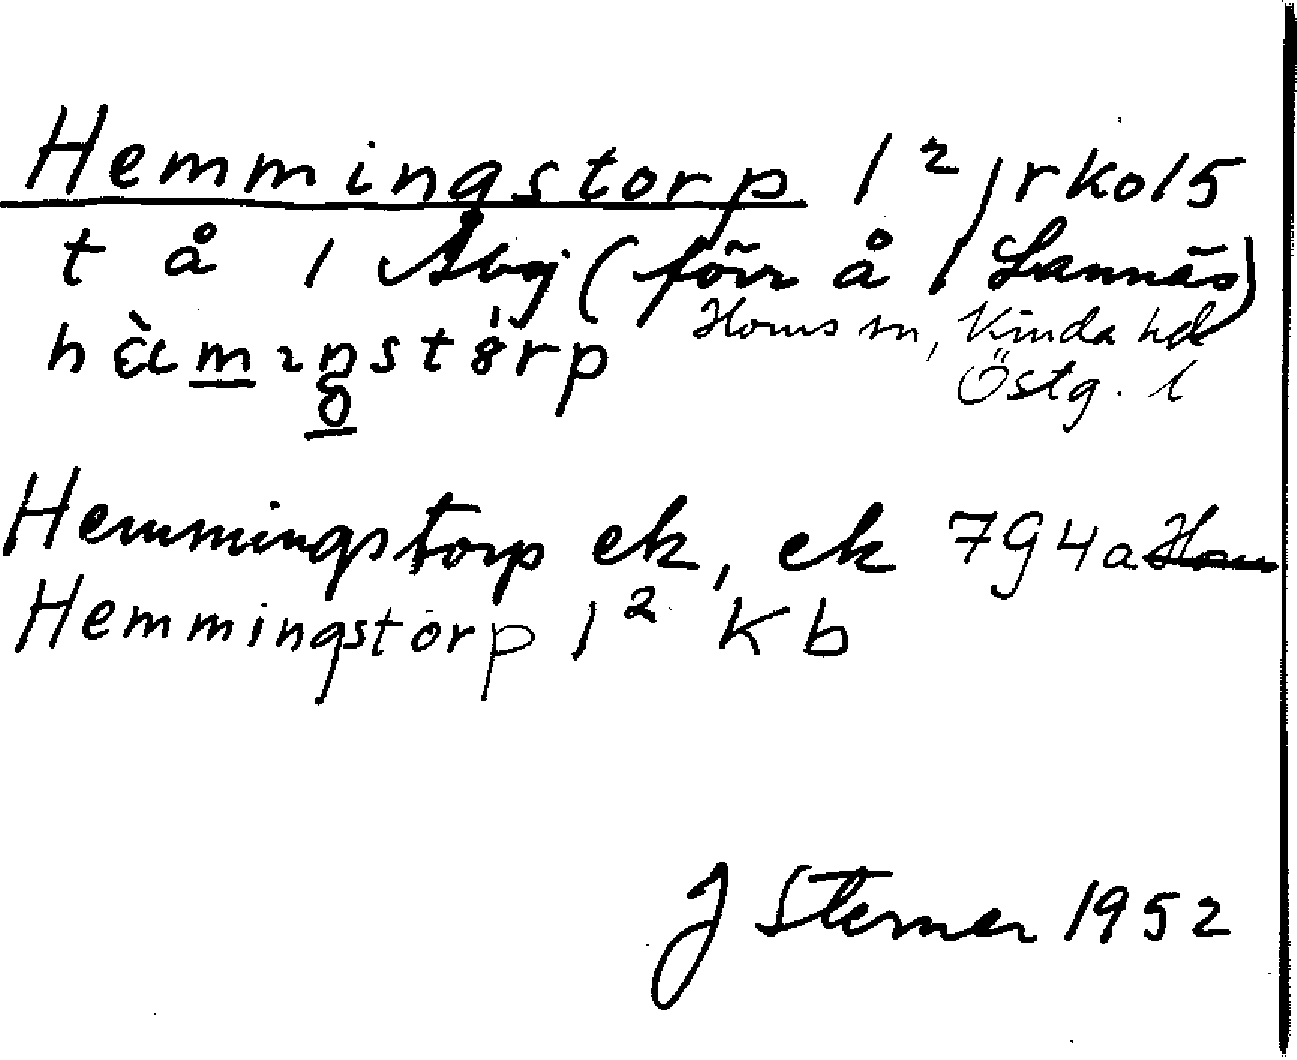 Hemmingstorp 1², rko15
t å 1 Åby (förr å 1 Sannäs)
Horns sn, Kinda hd
Östg. l
hæ̀mıŋstòrp
Hemmingstorp ek, ek 794a
Hemmingstorp 1² Kb
J Sterner 1952